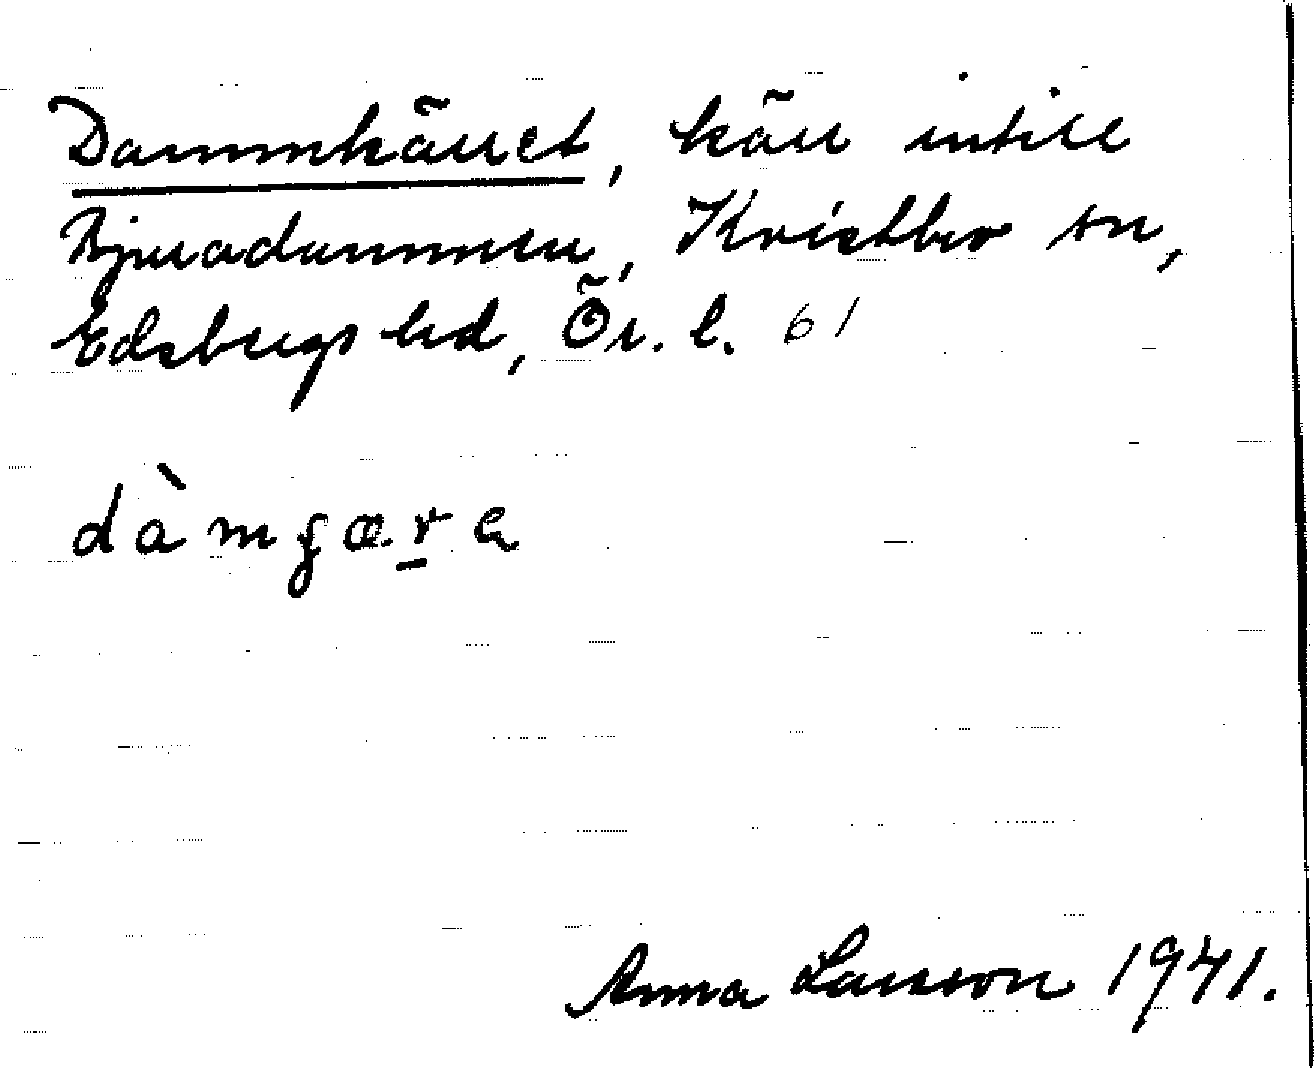 Dammkärret, kärr intill
Bjuradammen, Kvistbro sn,
Edsbergs hd, Ör. l. 61
dàmgæ̱rə
Anna Larsson 1941.